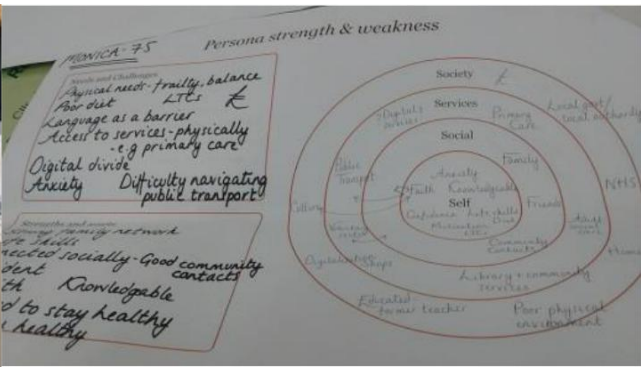 MONICA - 75
Persona strength & weakness
Needs and Challenges
Physical needs - frailty, balance
Poor diet LTCs £
Language as a barrier
Access to services - physically
- e.g primary care
Digital divide
Anxiety Difficulty navigating
public transport
Strengths and
family network
skills
ected socially - Good community
contacts
dent
th Knowledgable
d to stay healthy
healthy
Society £
Services
Primary
Care
Local govt/
local authority
Social
Public
Transport
Family
Anxiety
Faith Knowledgable
NHS
Self
Friends
Confidence Life skills
Motivation
LTCs
Community
Contacts
Shops
Library + community
services
Educated
former teacher
Poor physical
environment